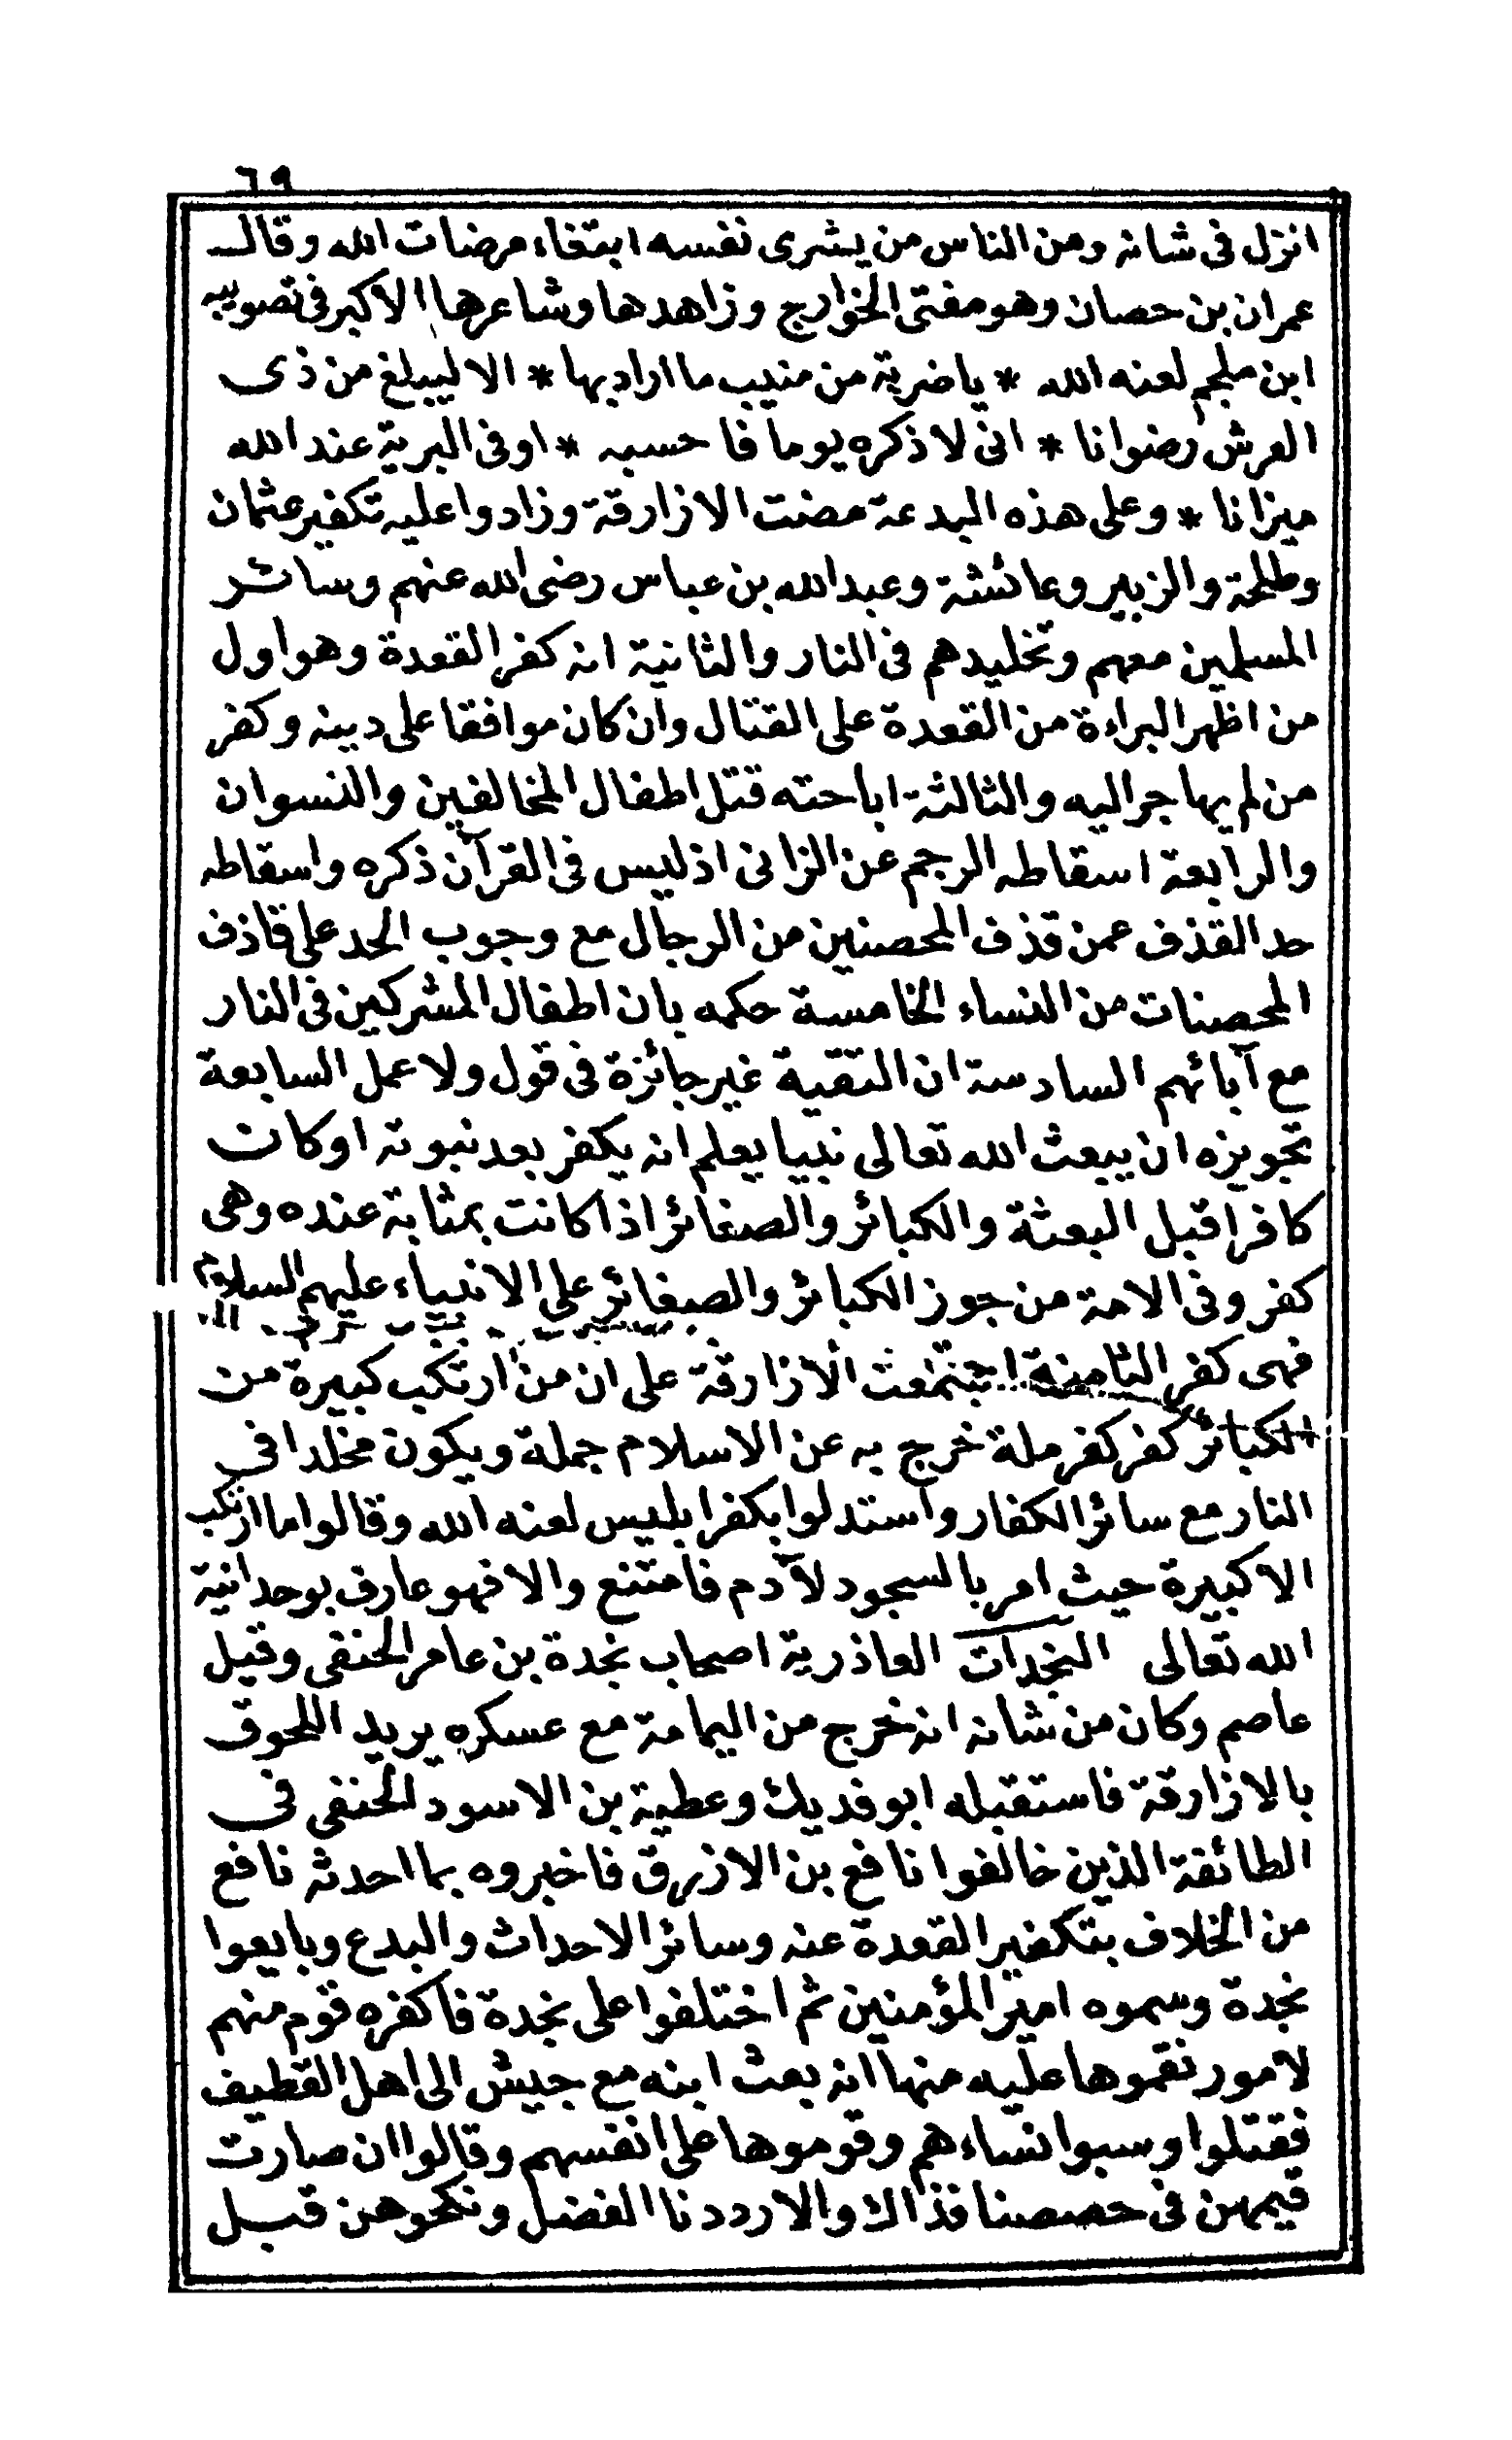 ٦٩
انزل فى شانه ومن الناس من يشرى نفسه ابتغاء مرضات الله وقال
عمران بن حصان وهو مفتى الخوارج وزاهدها وشاعرها الاكبر فى تصويبه
ابن ملجم لعنه الله * ياضربة من منيب ما اراد بها * الا ليبلغ من ذى
العرش رضوانا * انى لاذكره يوما فاحسبه * اوفى البرية عند الله
ميزانا * وعلى هذه البدعة مضت الازارقة وزادوا عليه تكفير عثمان
وطلحة والزبير وعائشة وعبدالله بن عباس رضى الله عنهم وسائر
المسلمين معهم وتخليدهم فى النار والثانية انه كفر القعدة وهو اول
من اظهر البراءة من القعدة على القتال وان كان موافقا على دينه وكفر
من لم يهاجر اليه والثالثة اباحته قتل اطفال المخالفين والنسوان
والرابعة اسقاطه الرجم عن الزانى اذ ليس فى القرآن ذكره واسقاطه
حد القذف عمن قذف المحصنين من الرجال مع وجوب الحد على قاذف
المحصنات من النساء الخامسة حكمه بان اطفال المشركين فى النار
مع آبائهم السادسة ان التقية غير جائزة فى قول ولا عمل السابعة
تجويزه ان يبعث الله تعالى نبيا يعلم انه يكفر بعد نبوته او كان
كافرا قبل البعثة والكبائر والصغائر اذا كانت بمثابة عنده وهى
كفر وفى الامة من جوز الكبائر والصغائر على الانبياء عليهم السلام
فهى كفر الثامنة اجتمعت الازارقة على ان من ارتكب كبيرة من
الكبائر كفر كفر ملة خرج به عن الاسلام جملة ويكون مخلدا فى
النار مع سائر الكفار واستدلوا بكفر ابليس لعنه الله وقالوا ما ارتكب
الا كبيرة حيث امر بالسجود لآدم فامتنع والا فهو عارف بوحدانية
الله تعالى النجدات العاذرية اصحاب نجدة بن عامر الحنفى وقيل
عاصم وكان من شانه انه خرج من اليمامة مع عسكره يريد اللحوق
بالازارقة فاستقبله ابو فديك وعطية بن الاسود الحنفى فى
الطائفة الذين خالفوا نافع بن الازرق فاخبروه بما احدثه نافع
من الخلاف بتكفير القعدة عنه وسائر الاحداث والبدع وبايعوا
نجدة وسموه امير المؤمنين ثم اختلفوا على نجدة فاكفره قوم منهم
لامور نقموها عليه منها انه بعث ابنه مع جيش الى اهل القطيف
فقتلوا وسبوا نساءهم وقوموها على انفسهم وقالوا ان صارت
قيمهن فى حصصنا فذاك والا رددنا الفضل ونكحوهن قبل